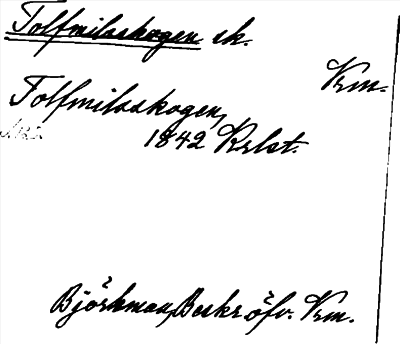 Tolfmilaskogen sk.
Vrm.
Tolfmilaskogen,
1842 Krlst.
Björkman, Beskr öfv. Vrm.